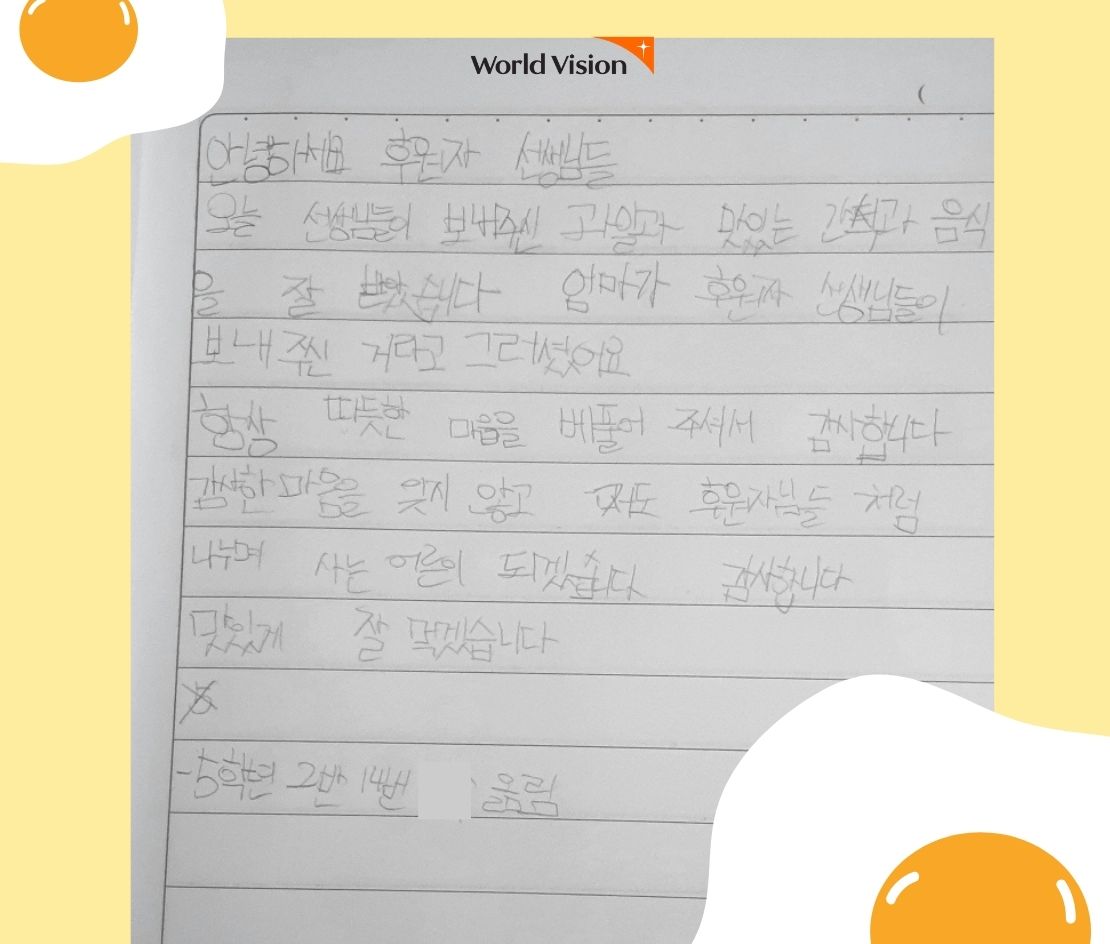 World Vision
(
안녕하세요 후원자 선생님들
오늘 선생님들이 보내주신 과일과 맛있는 간식과 음식
을 잘 받았습니다 엄마가 후원자 선생님들이
보내주신 거라고 그러셨어요
항상 따뜻한 마음을 베풀어 주셔서 감사합니다
감사한 마음을 잊지 않고 저도 후원자님들 처럼
나누며 사는 어른이 되겠습니다 감사합니다
맛있게 잘 먹겠습니다
-5학년 2반 14번 올림